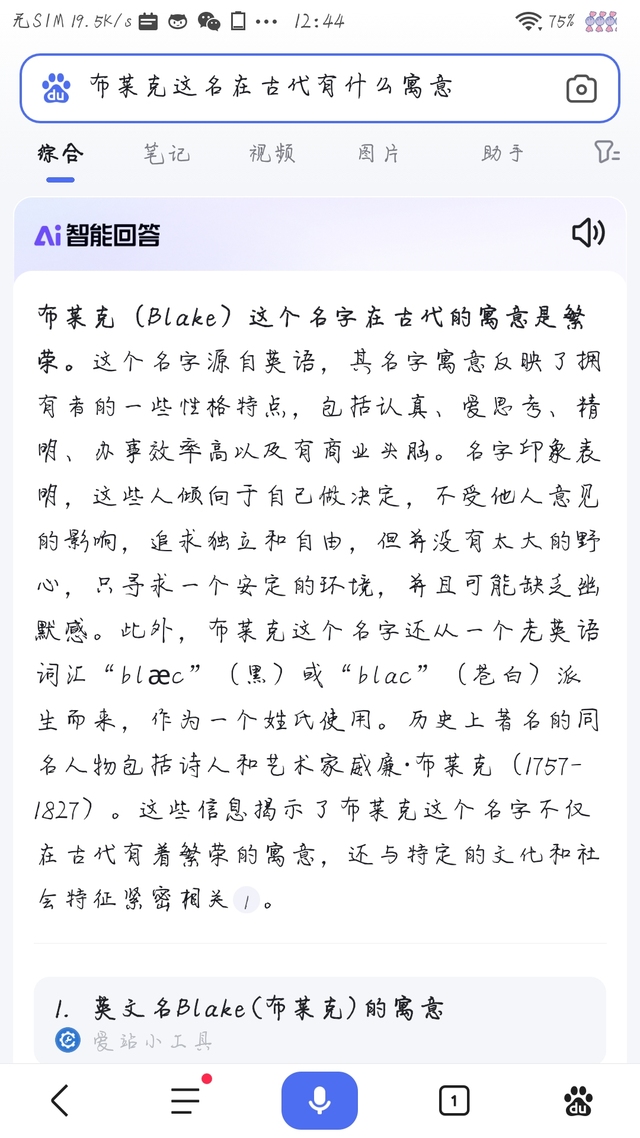 无SIM 19.5K/s 12:44 75%
du 布莱克这名在古代有什么寓意
综合 笔记 视频 图片 助手
Ai智能回答
布莱克（Blake）这个名字在古代的寓意是繁
荣。这个名字源自英语，其名字寓意反映了拥
有者的一些性格特点，包括认真、爱思考、精
明、办事效率高以及有商业头脑。名字印象表
明，这些人倾向于自己做决定，不受他人意见
的影响，追求独立和自由，但并没有太大的野
心，只寻求一个安定的环境，并且可能缺乏幽
默感。此外，布莱克这个名字还从一个老英语
词汇“blæc”（黑）或“blac”（苍白）派
生而来，作为一个姓氏使用。历史上著名的同
名人物包括诗人和艺术家威廉·布莱克（1757-
1827）。这些信息揭示了布莱克这个名字不仅
在古代有着繁荣的寓意，还与特定的文化和社
会特征紧密相关 1 。
1. 英文名Blake(布莱克)的寓意
爱站小工具
1 du